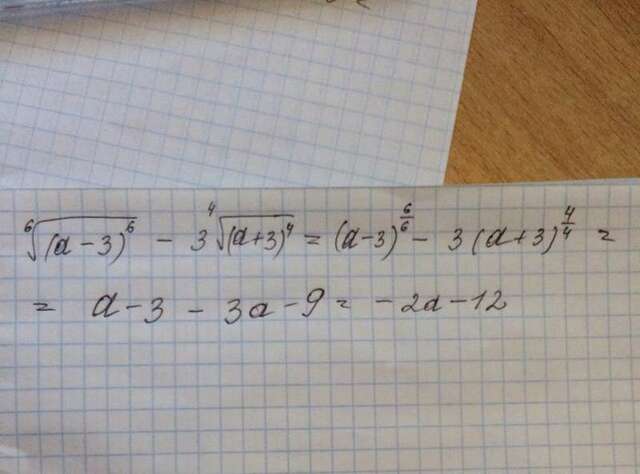 ⁶√(a-3)⁶ - 3 ⁴√(a+3)⁴ = (a-3)^(6/6) - 3(a+3)^(4/4) =
= a-3 - 3a-9 = -2a-12